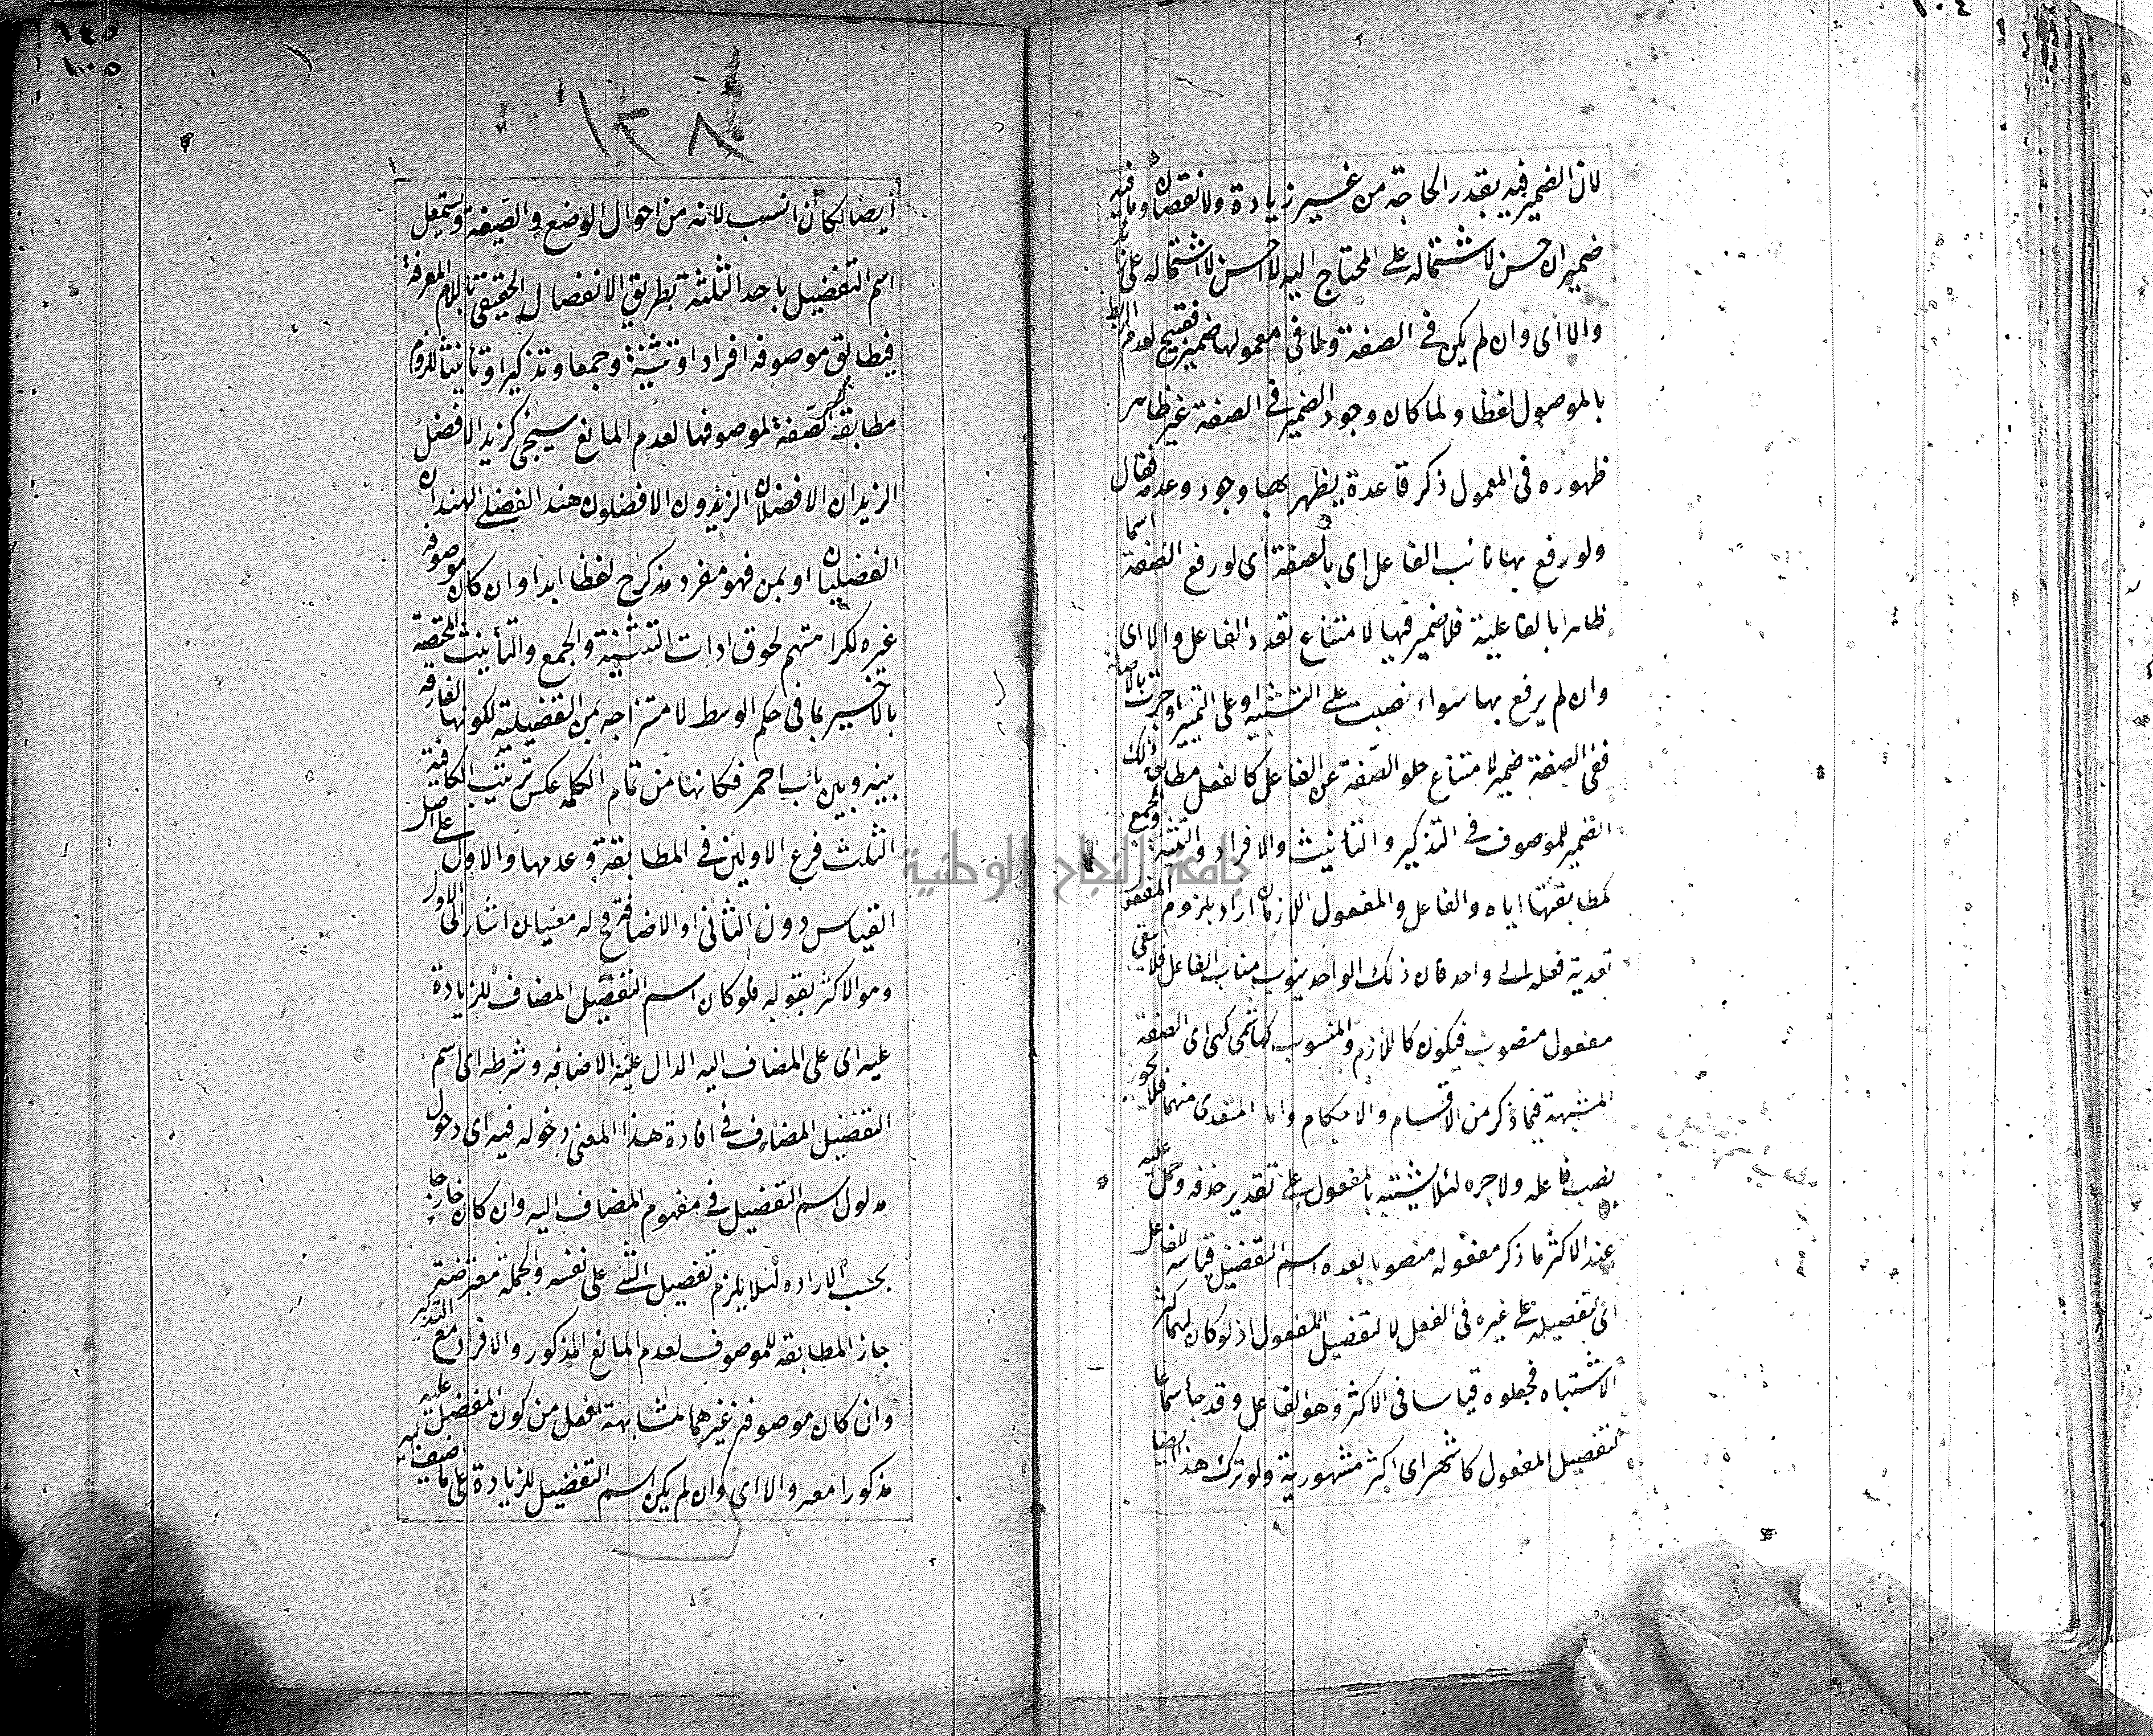 ١٠٤
لان الضمير فيه بقدر الحاجة من غير زيادة ولا نقصان وما فيه
ضميران حسن لاشتماله على المحتاج اليه لا احسن لاشتماله على
والا اى وان لم يكن فى الصفة ولا فى معمولها ضمير فقبيح لعدم الربط
بالموصول لفظا ولما كان وجود الضمير فى الصفة غير ظاهر
ظهوره فى المعمول ذكر قاعدة يظهر بها وجود وعدمه فقال
ولو رفع بها نائب الفاعل اى بالصفة اى لو رفع الصفة اسما
ظاهرا بالفاعلية فلا ضمير فيها لامتناع تعدد الفاعل والا اى
وان لم يرفع بها سواء نصب على التشبيه او على التمييز او جرت بالاضافة
ففى الصفة ضمير لامتناع خلو الصفة عن الفاعل كالفعل مطابق ذلك
الضمير للموصوف فى التذكير والتأنيث والافراد والتثنية والجمع
كمطابقتها اياه والفاعل والمفعول اللازمان اراد بلزوم المفعول
تعدية فعله الى واحد فان ذلك الواحد ينوب مناب الفاعل فلا يبقى
مفعول منصوب فيكون كاللازم والمنسوب كهاشمى كهى اى الصفة
المشبهة فيما ذكر من الاقسام والاحكام واما المتعدى منهما فلا يجوز
نصب فاعله ولا جره لئلا يشتبه بالمفعول على تقدير حذفه وحمل عليه
عند الاكثر ما ذكر مفعوله منصوبا بعده اسم التفضيل قياسه للفاعل
اى لتفضيله على غيره فى الفعل لا لتفضيل المفعول اذ لو كان لهما لكثر
الاشتباه فجعلوه قياسا فى الاكثر وهو الفاعل وقد جا سماعا
لتفضيل المفعول كاشهر اى اكثر مشهورية ولو ترك هذا ايضا
١٠٥
١٣٨
ايضا لكان انسب لانه من احوال الوضع والصيغة ويستعمل
اسم التفضيل باحد الثلثة بطريق الانفصال الحقيقى باللام المعرفة
فيطابق موصوفه افرادا وتثنية وجمعا وتذكيرا وتأنيثا للزوم
مطابقة الصفة لموصوفها لعدم المانع سيجئ كزيد الافضل
الزيدان الافضلان الزيدون الافضلون هند الفضلى الهندان
الفضليان او بمن فهو مفرد مذكر ح لفظا ابدا وان كان موصوفه
غيره لكراهتهم لحوق ادات التثنية والجمع والتأنيث المختصة
بالاخير بما فى حكم الوسط لامتزاجه بمن التفضيلية لكونها الفارقة
بينه وبين باب احمر فكانها من تمام الكلمه عكس ترتيب الكافية
الثلث فرع الاولين فى المطابقة وعدمها والاول على اصل
القياس دون الثانى او الاضافة ح له معنيان اشار الى الاول
وهو الاكثر بقوله فلو كان اسم التفضيل المضاف للزيادة
عليه اى على المضاف اليه الدال عليه الاضافه وشرطه اى اسم
التفضيل المضاف فى افادة هذا المعنى دخوله فيه اى دخول
مدلول اسم التفضيل فى مفهوم المضاف اليه وان كان خارجا
بحسب الاراده لئلا يلزم تفضيل الشئ على نفسه والجملة معترضة
جاز المطابقه للموصوف لعدم المانع المذكور والافراد مع التذكير
وان كان موصوفه غيرهما لمشابهة افعل من كون المفضل عليه
مذكورا معه والا اى وان لم يكن اسم التفضيل للزيادة على ما اضيف اليه
جامعة النجاح الوطنية